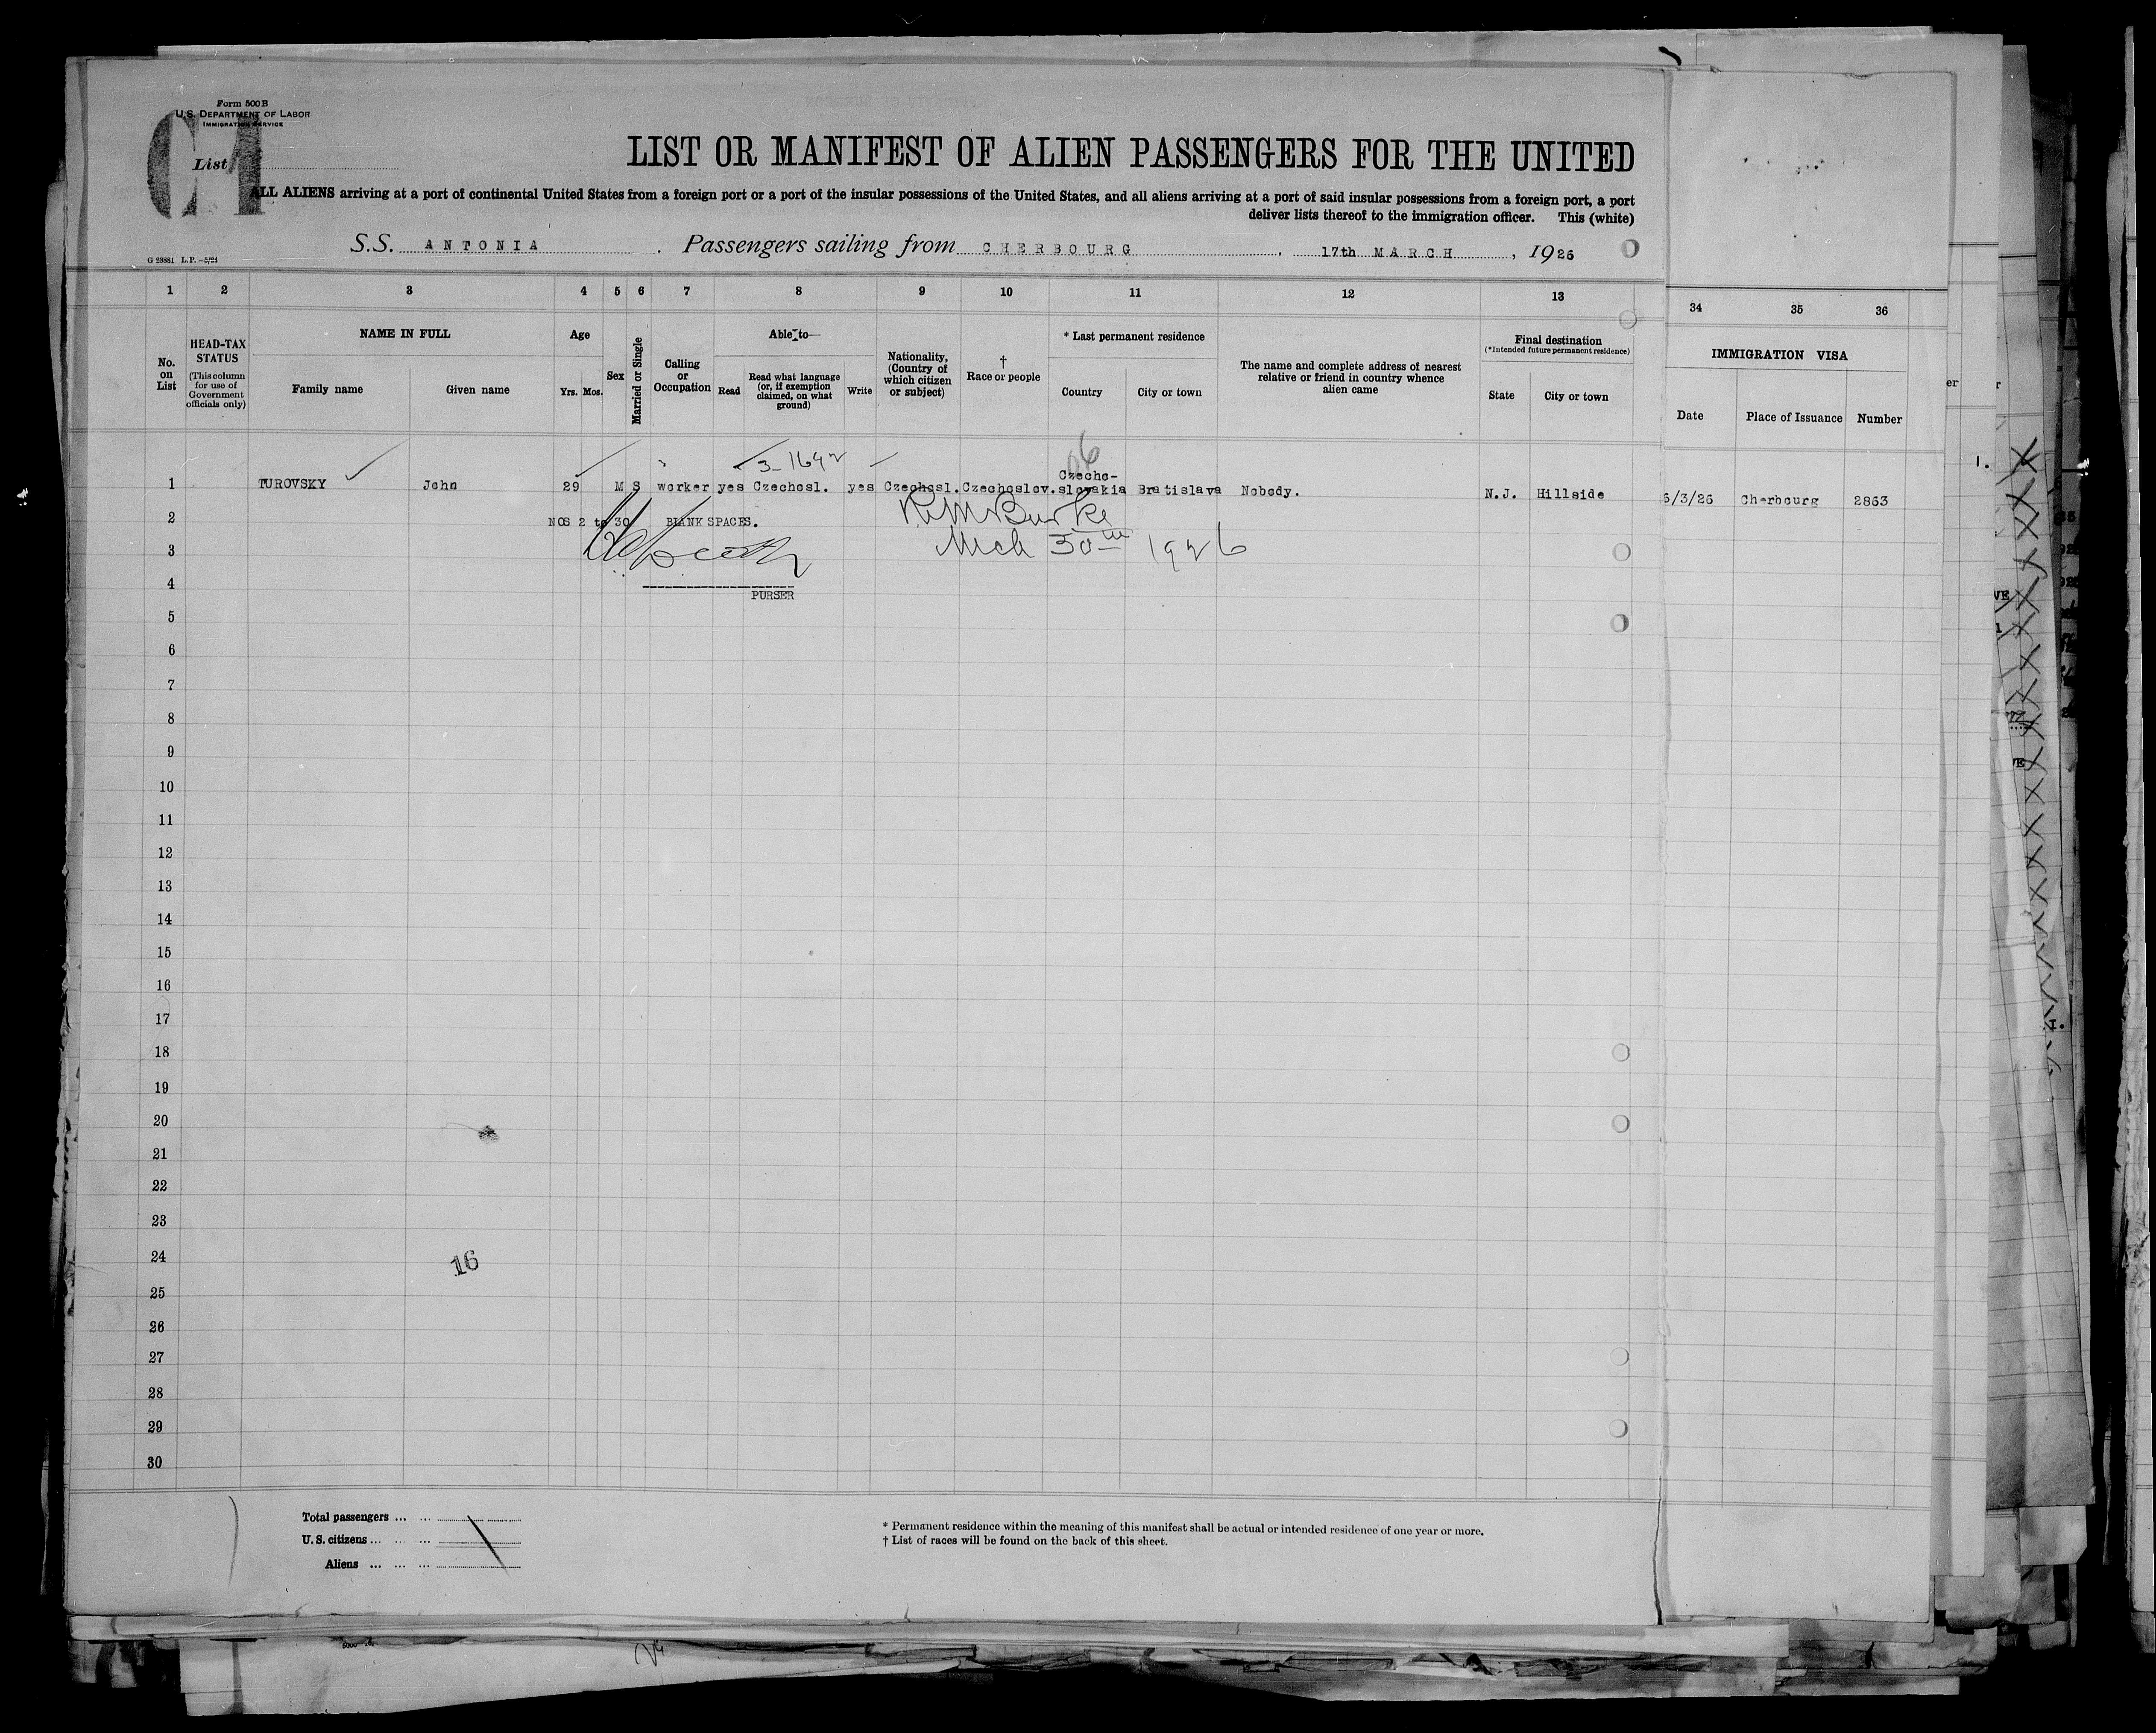 Form 500 B
U.S. DEPARTMENT OF LABOR
IMMIGRATION SERVICE
List
LIST OR MANIFEST OF ALIEN PASSENGERS FOR THE UNITED
ALL ALIENS arriving at a port of continental United States from a foreign port or a port of the insular possessions of the United States, and all aliens arriving at a port of said insular possessions from a foreign port, a port
deliver lists thereof to the immigration officer. This (white)
S.S. ANTONIA. Passengers sailing from CHERBOURG. 17th MARCH, 1926
G 23881 L.P.—5/24
1 2 3 4 5 6 7 8 9 10 11 12 13 34 35 36
No. on List
HEAD-TAX STATUS (This column for use of Government officials only)
NAME IN FULL
Family name Given name
Age
Yrs. Mos.
Sex
Married or Single
Calling or Occupation
Able to—
Read
Read what language (or, if exemption claimed, on what ground)
Write
Nationality, (Country of which citizen or subject)
† Race or people
* Last permanent residence
Country City or town
The name and complete address of nearest relative or friend in country whence alien came
Final destination
(*Intended future permanent residence)
State City or town
IMMIGRATION VISA
Date Place of Issuance Number
3-1642
06
1 TUROVSKY John 29 M S worker yes Czechosl. yes Czechosl. Czechoslov. Czecho-slovakia Bratislava Nobody. N.J. Hillside 6/3/26 Cherbourg 2863
2 NOS 2 to 30 BLANK SPACES.
Burke
3 Mch 30th 1926
4
PURSER
5
6
7
8
9
10
11
12
13
14
15
16
17
18
19
20
21
22
23
24
16
25
26
27
28
29
30
Total passengers ... ...
U. S. citizens ... ... ...
Aliens ... ... ...
* Permanent residence within the meaning of this manifest shall be actual or intended residence of one year or more.
† List of races will be found on the back of this sheet.